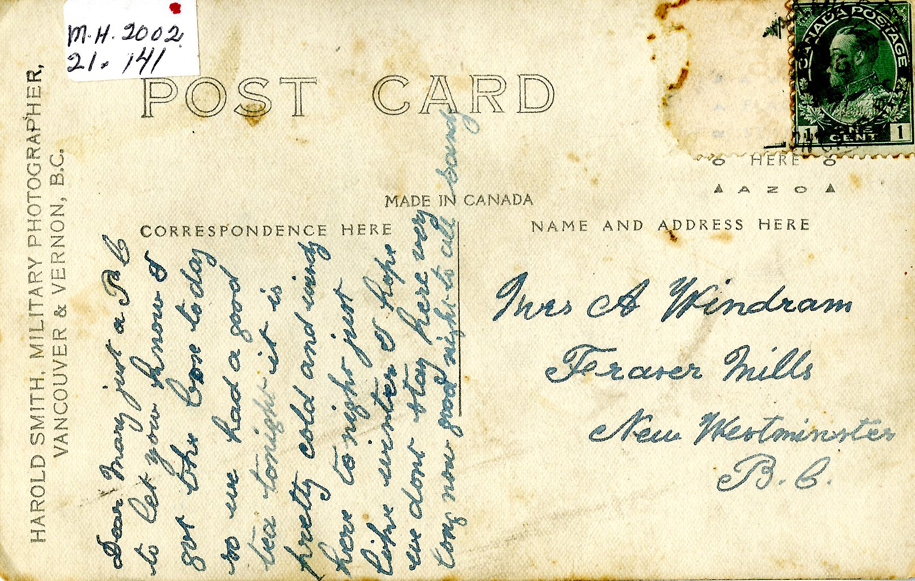 M.H. 2002.
21. 141
POST CARD
CANADA POSTAGE
ONE CENT
1 1
HERE
AZO
MADE IN CANADA
CORRESPONDENCE HERE
NAME AND ADDRESS HERE
HAROLD SMITH, MILITARY PHOTOGRAPHER,
VANCOUVER & VERNON, B.C.
Dear Mary just a P C
to let you know I
got the box to day
so we had a good
tea tonight it is
pretty cold and windy
here to night just
like winter I hope
we dont stay here very
long now good night to all
Mrs A Windram
Fraser Mills
New Westminster
B.C.